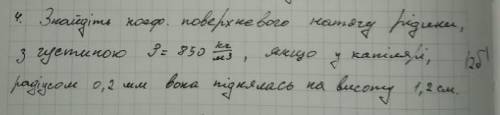 4. Знайдіть коеф. поверхневого натягу рідини,
з густиною ρ = 850 кг/м3, якщо у капілярі, 12б
радіусом 0,2 мм вона піднялась на висоту 1,2 см.